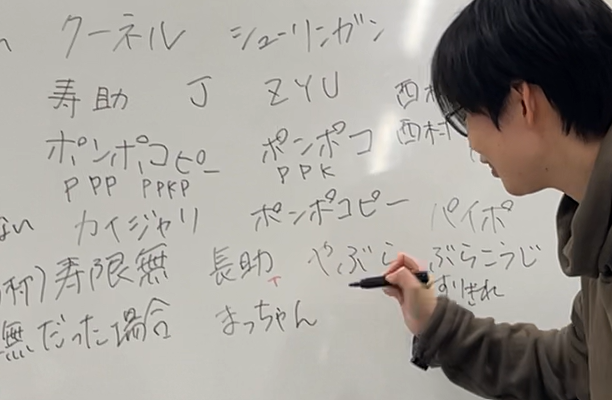 クーネル シューリンガン
寿助 J ZYU 西村
ポンポコピー ポンポコ 西村
PPP PPKP PPK
ない カイジャリ ポンポコピー パイポ
村) 寿限無 長助 やぶら ぶらこうじ
T すりきれ
無だった場合 まっちゃん